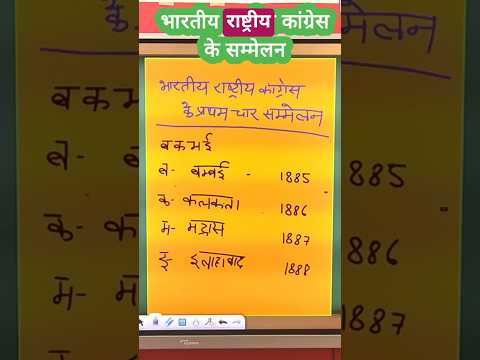 भारतीय राष्ट्रीय कांग्रेस
के सम्मेलन
भारतीय राष्ट्रीय कांग्रेस
के प्रथम चार सम्मेलन
ब क म ई
ब- बम्बई - 1885
क- कलकता 1886
म- मद्रास 1887
इ- इलाहाबाद 1888